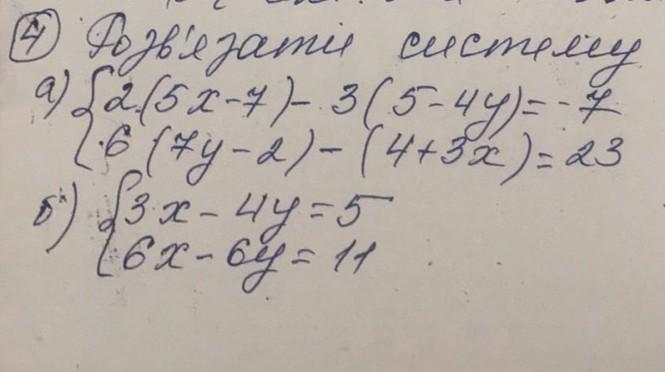 ④ Розв'язати систему
а) { 2(5x-7)-3(5-4y)=-7
6(7y-2)-(4+3x)=23
б) { 3x-4y=5
6x-6y=11